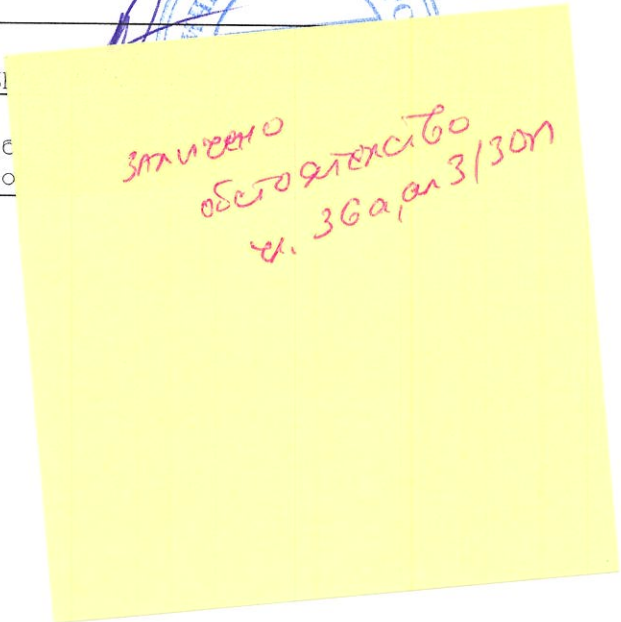 заличено
обстоятелство
чл. 36а, ал 3/ЗОП